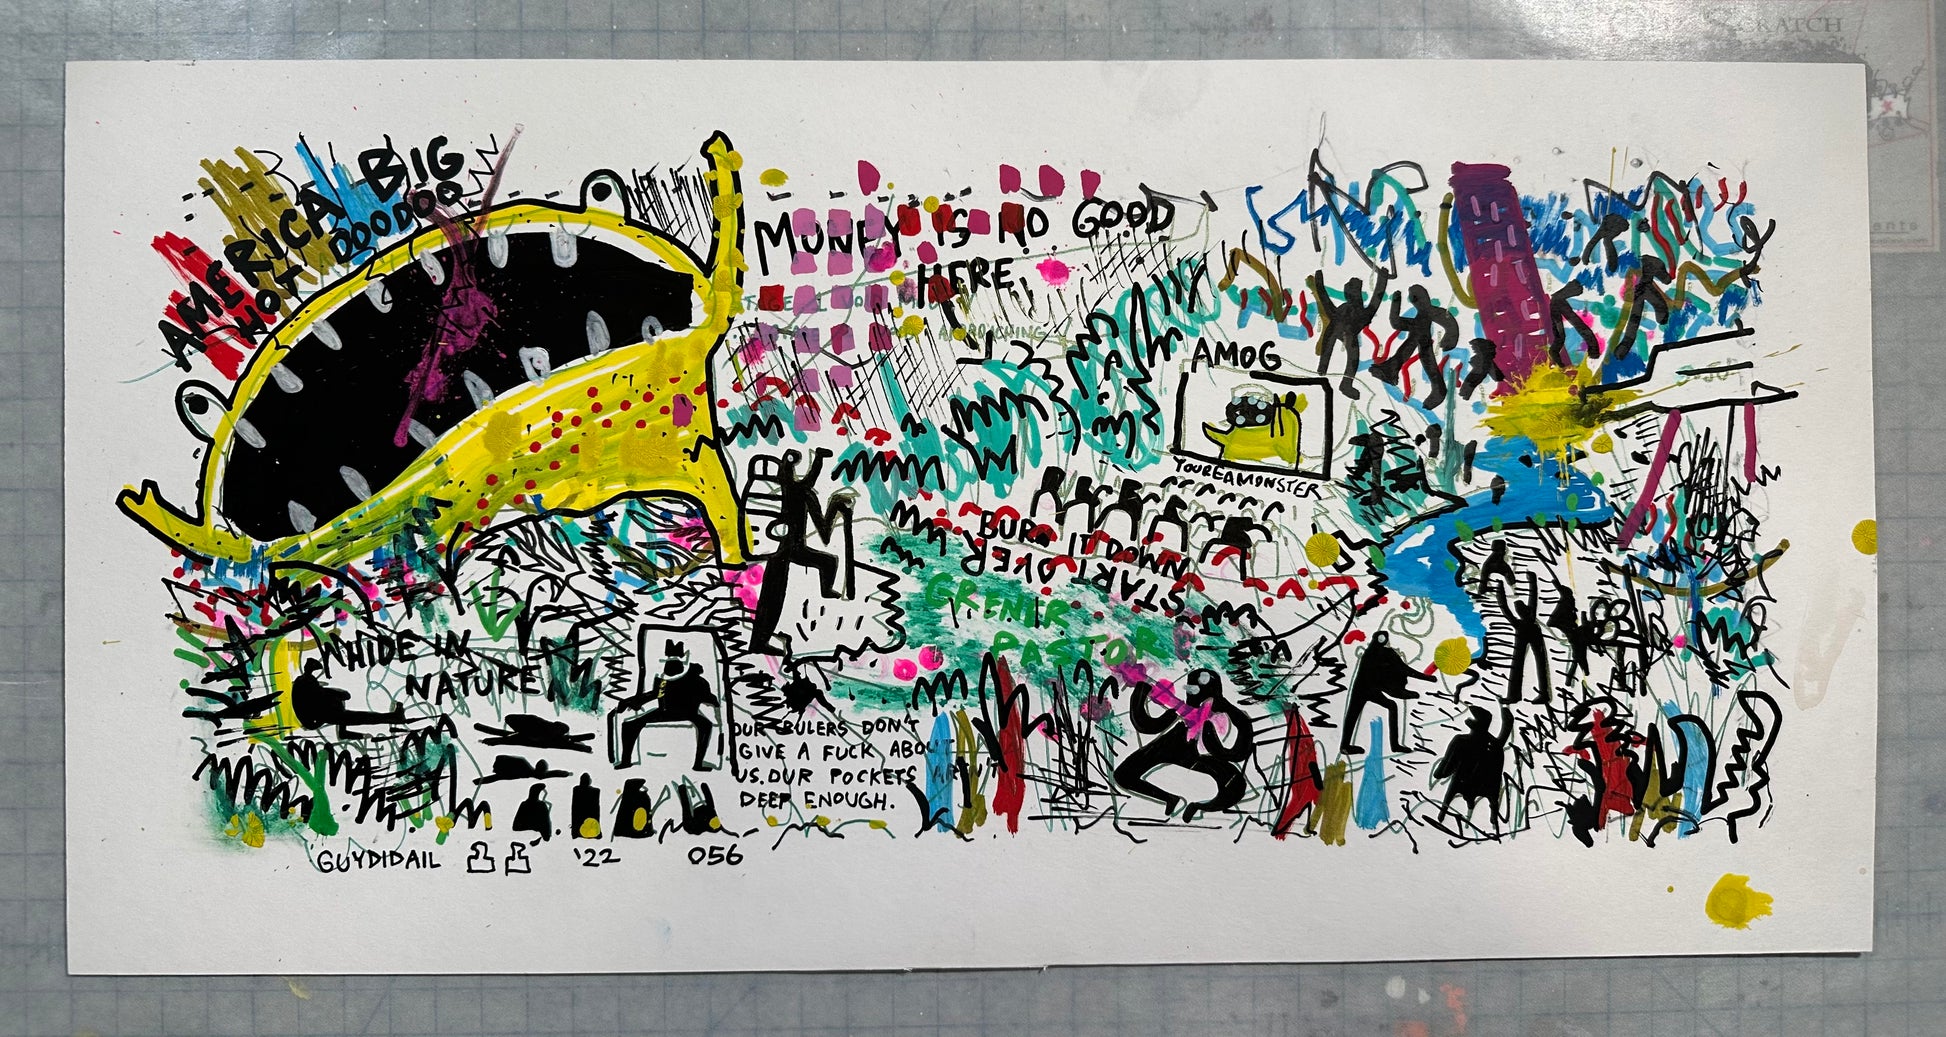 AMERICA BIG
HOT DOODOO
MUNEY IS NO GOOD
HERE
AMOG
YOUREAMONSTER
BURN IT DOWN
START OVER
GRENIR
PASTOR
WHIDE IN
NATURE
OUR RULERS DON'T
GIVE A FUCK ABOUT
US. OUR POCKETS AREN'T
DEEP ENOUGH.
GUYDIDAIL '22 056
CRATCH